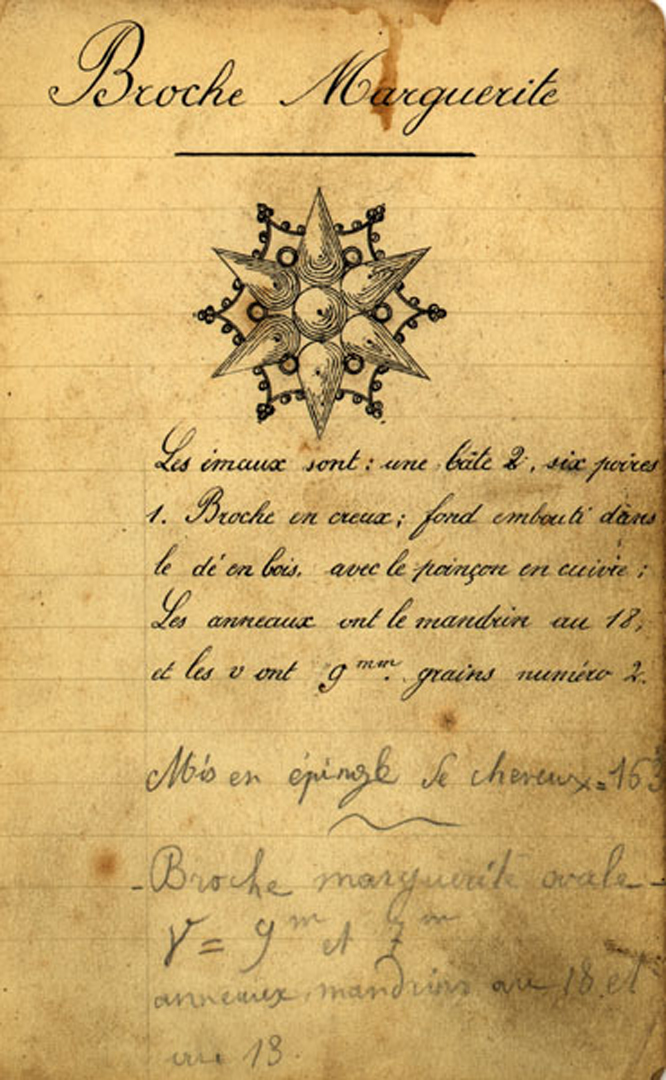 Broche Marguerite
Les émaux sont : une bâte 2, six poires
1. Broche en creux ; fond embouti dans
le dé en bois, avec le poinçon en cuivre ;
Les anneaux ont le mandrin au 18,
et les v ont 9 mm. grains numéro 2.
Mis en épingle de cheveux = 163
- Broche marguerite ovale -
V = 9 m et 7 m
anneaux mandrins au 18 et
au 13.